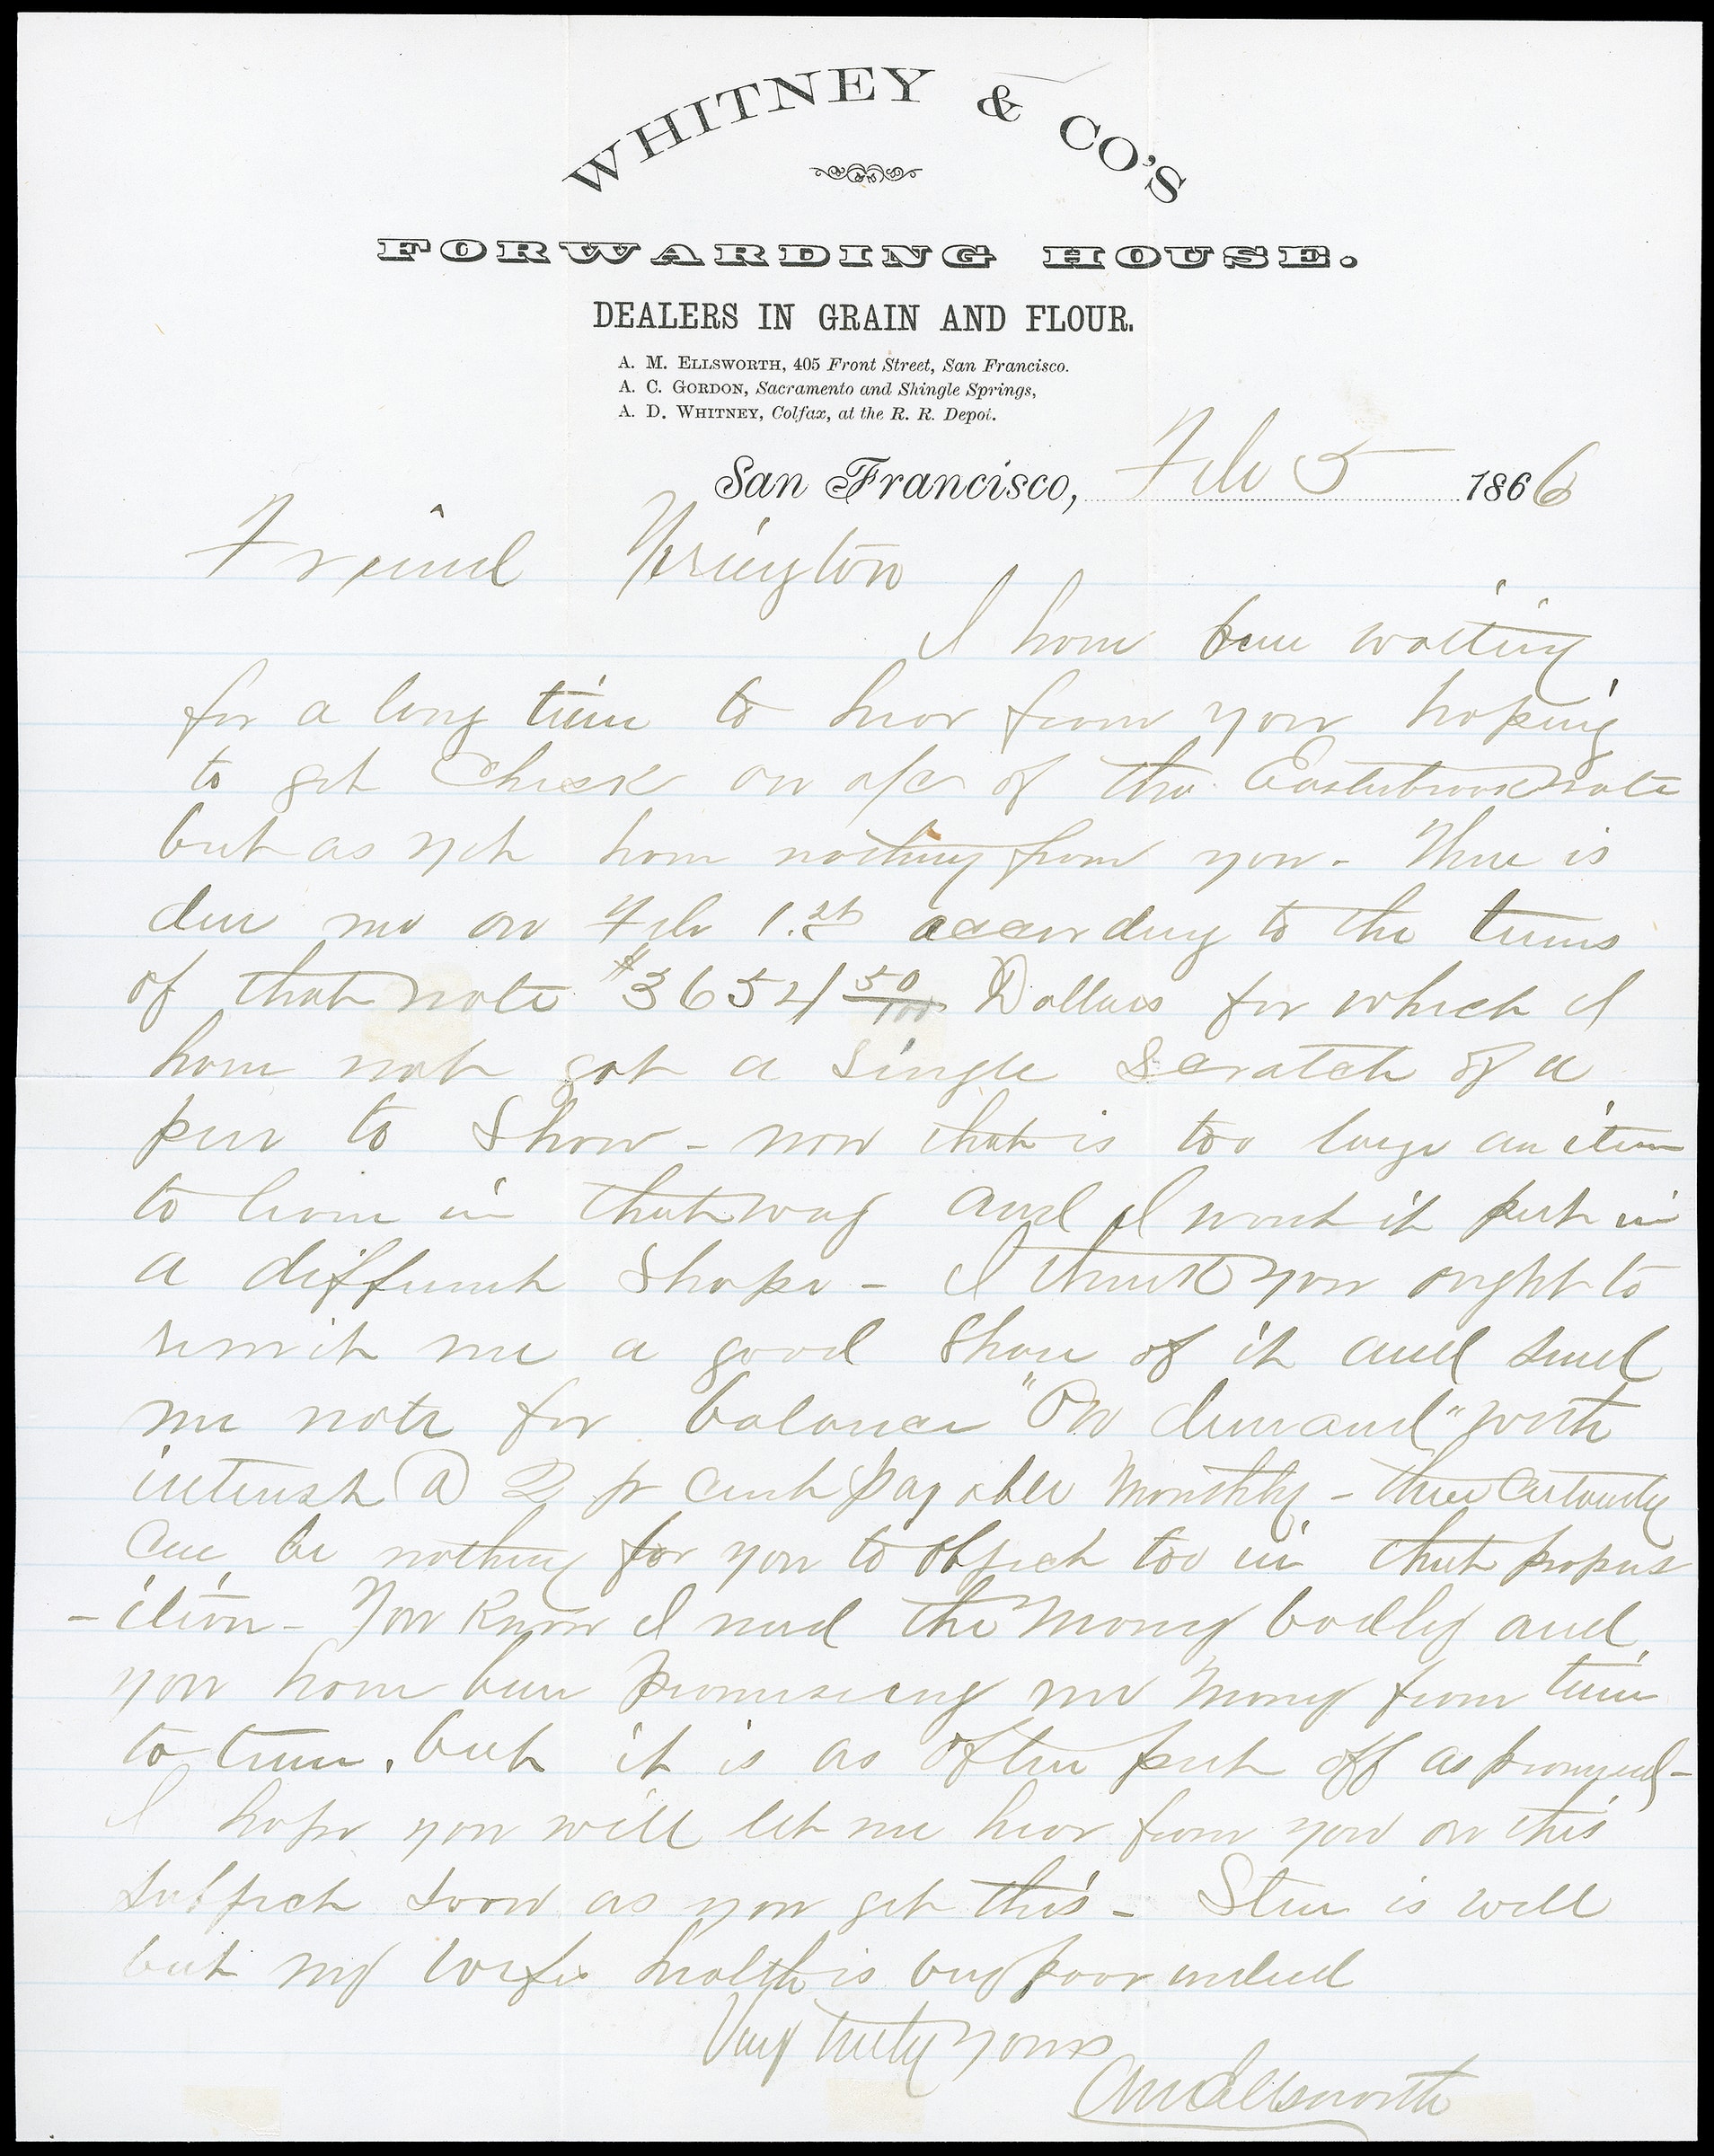 WHITNEY & CO'S
FORWARDING HOUSE.
DEALERS IN GRAIN AND FLOUR.
A. M. ELLSWORTH, 405 Front Street, San Francisco.
A. C. GORDON, Sacramento and Shingle Springs,
A. D. WHITNEY, Colfax, at the R. R. Depot.
San Francisco, Feb 5 1866
Friend Yerington
I have been waiting
for a long time to hear from you hoping
to get Check on a/c of the Easterbrook note
but as yet have nothing from you - There is
due me on Feb 1.st according to the terms
of that note $3654 50/100 Dollars for which I
have not got a single scratch of a
pen to Show - now that is too large an item
to have in that way and I want it put in
a different Shape - I think you ought to
remit me a good Share of it and send
me note for balance "On demand" with
interest @ 2 pr cent payable Monthly - there certainly
can be nothing for you to object too in that propos
- ition - You Know I need the Money badly and
you have been promiseing me Money from time
to time. but it is as often put off as promised -
I hope you will let me hear from you on this
Subject soon as you get this - Stew is well
but my wifes health is very poor indeed
Very truly yours
AM Ellsworth